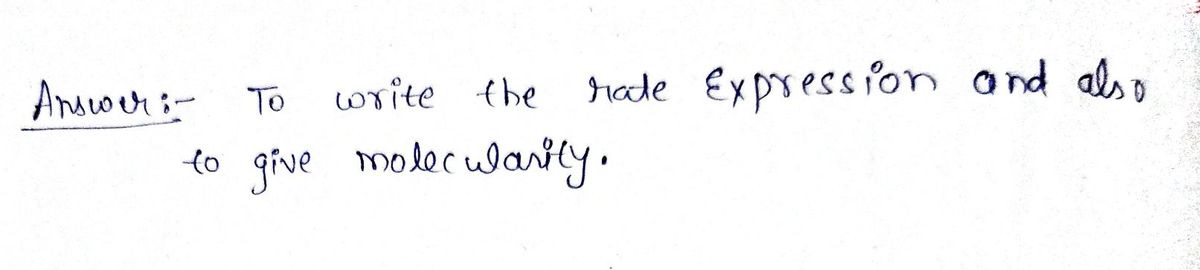 Answer :- To write the rate Expression and also
to give molecularity.